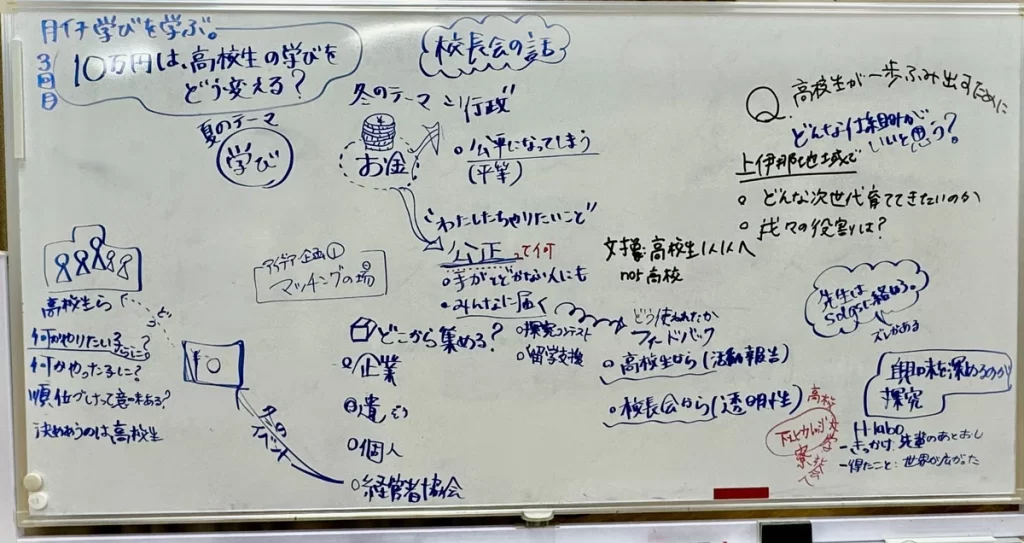 月イチ学びを学ぶ。
3回目
10万円は、高校生の学びを
どう変える？
校長会の話
夏のテーマ
学び
冬のテーマ
お金
行政
公平になってしまう
(平等)
"わたしたちがやりたいこと"
公正って何
・手がとどかない人にも
・みんなに届く
アイデア企画①
マッチングの場
高校生ら
何がやりたい
何がやったらしに？
順位づけって意味ある？
決めあうのは高校生
冬の
イベント
どこから集める？
企業
遺
個人
経営者協会
探究コンテスト
留学支援
対象:高校生1人1人へ
not 高校
どう使われたか
フィードバック
高校生から(活動報告)
校長会から(透明性)
Q. 高校生が一歩ふみ出すために
どんな仕組みが
いいと思う？
上伊那地域で
どんな次世代育ててきたいのか
我々の役割は？
先生は
SDGsに絡める。
ズレがある
興味を深めるのが
探究
H-labo
-きっかけ:先輩のあとおし
-得たこと:世界が広がった
高校
カレッジ
寮